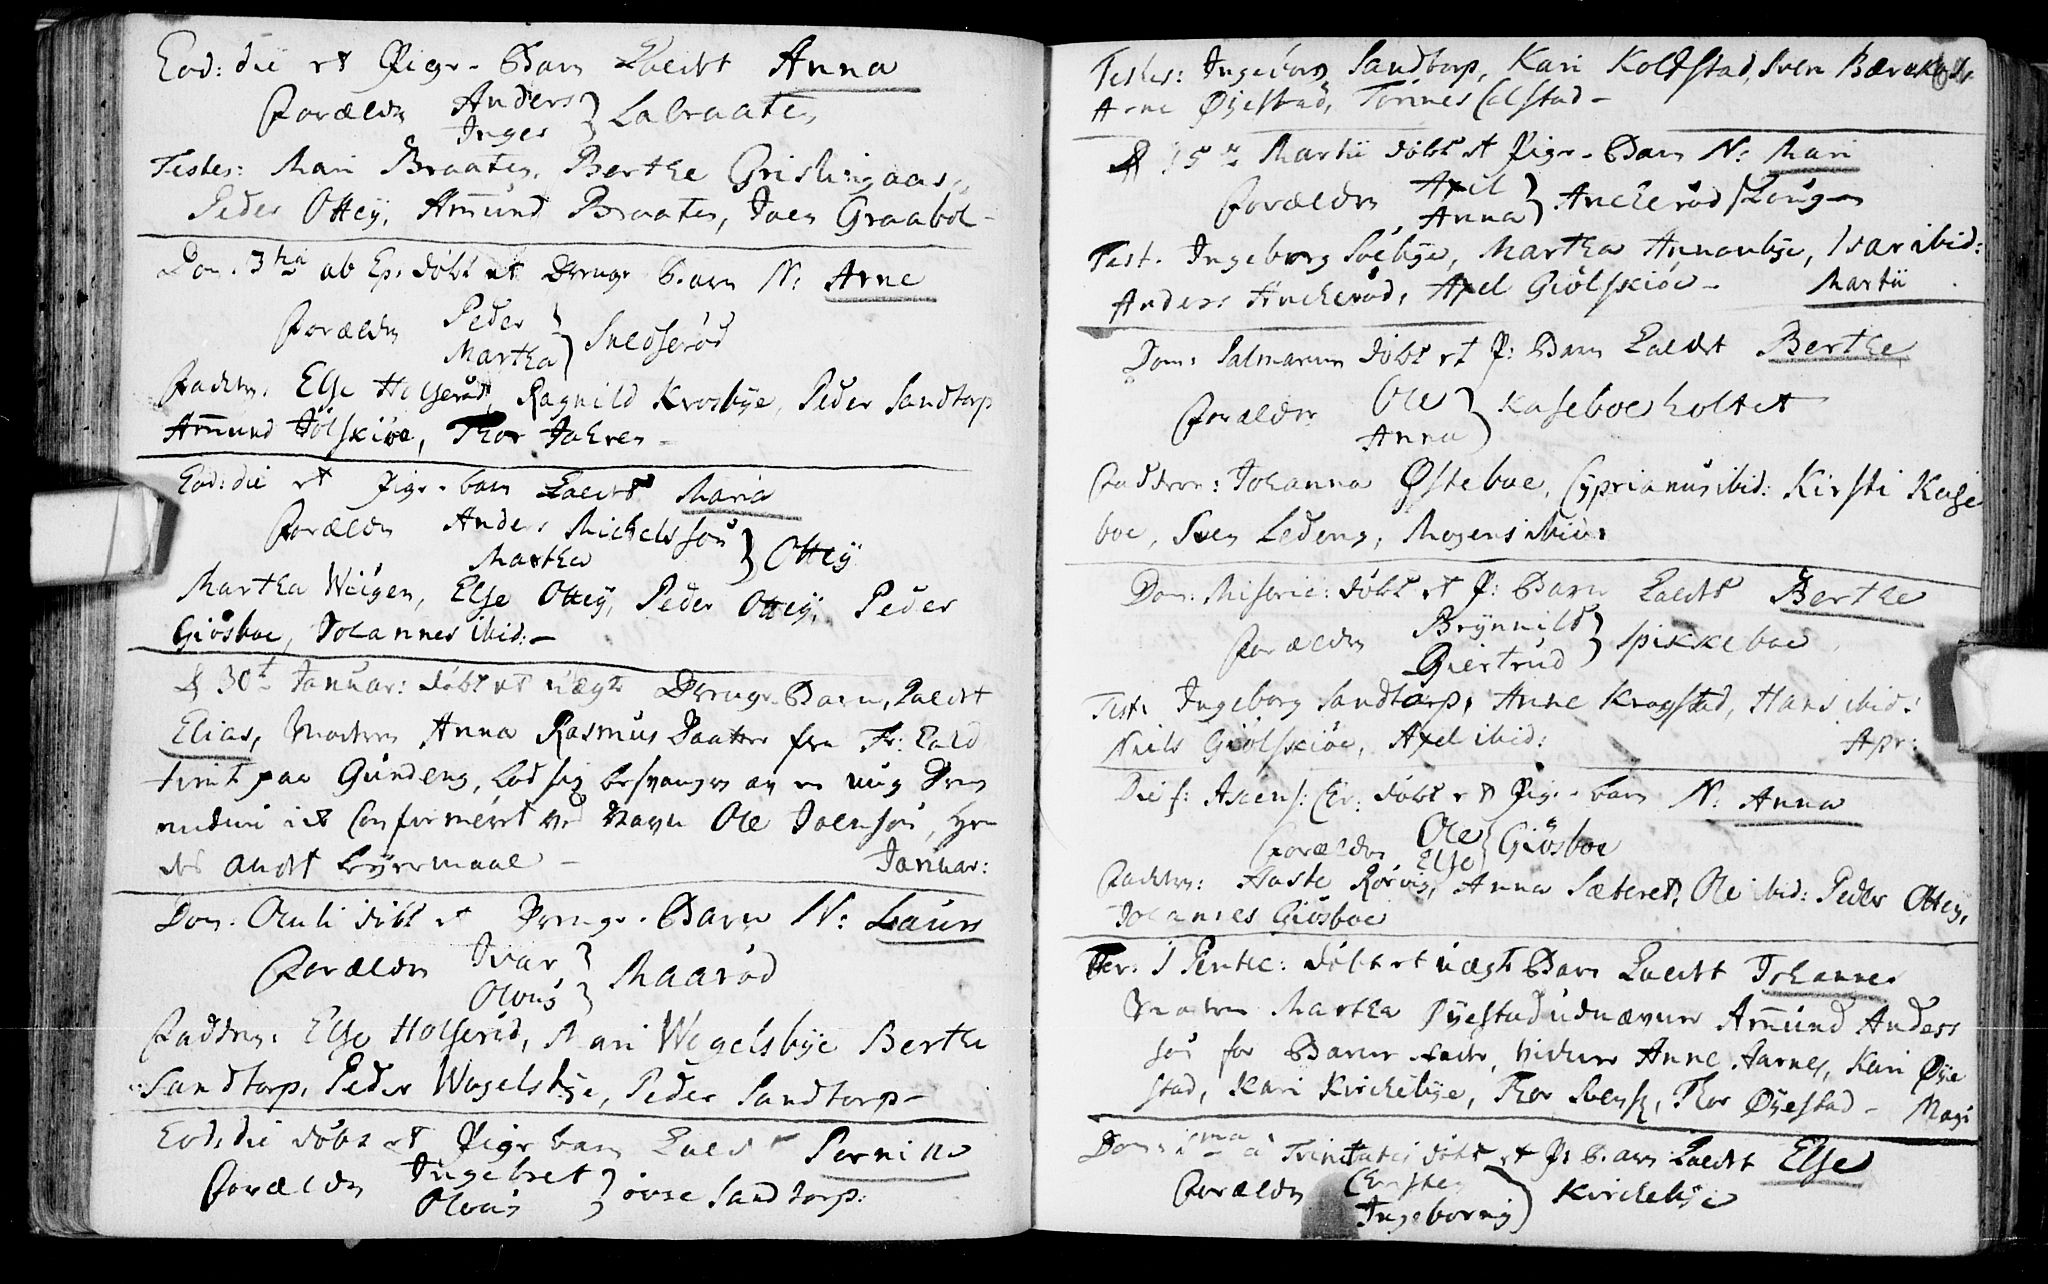 Eod: die et Pige-Barn Kaldet Anna
Forældr Anders
Inger } Labraaten
Testes: Mari Braaten, Berthe Grislingaas,
Peder Ottey, Amund Braaten, Joen Graabøl -
Dom. 3tia ab Ep. døbt et Drenge Barn N: Arne
Forældr Peder
Martha } Snedserød
Faddr. Else Holserød, Ragnild Krosbye, Peder Sandtorp
Amund Jølskiøe, Thor Jahren -
Eod: die et Pige-barn Kaldet Maria
Forældr Anders Michelssøn
Martha } Ottey
Martha Weigen, Else Ottey, Peder Ottey, Peder
Giøsboe, Johannes ibid: -
d 30t Januar: døbt et uægte Drenge-Barn, Kaldet
Elias, Moderen Anna Rasmus Daatter fra Fr: hald
tient paa Gundeng, lod sig besvangre av en ung Dreng
endnu ict Confirmeret ved Navn Ole Joensøn, hen
des andet Leyermaal -
Januar:
Dom. Oculi døbt et Drenge-Barn N: Laurs
Forældr Ivar
Olous } Maarød
Faddrn: Else Holserød, Mari Wogelsbye Berthe
Sandtorp, Peder Wogelsbye, Peder Sandtorp -
Eod: die døbt et Pige barn Kaldet Pernille
Forældr Ingebret
Olous } øvre Sandtorp:
Testes: Ingeborg Sandtorp, Kari Kolstad, Sven
Arne Øyestad, Tønnes Colstad -
d 25n Martii døbt et Pige-Barn N: Mari
Forældrn Axel
Anna } Anckerød /Skougen
Test. Ingeborg Soebye, Martha Annonbye, Ivar ibid:
Anders Anckerød, Axel Giølskiøe -
Martii
Dom: Palmarum døbt et P: Barn Kaldet Berthe
Forældre Ole
Anna } Kaseboeholtet
Faddere: Johanna Østeboe, Cyprianus ibid: Kirsti Kase
boe, Sven Ledeng, Mogens ibid:
Dom: Miseric: døbt et P: Barn Kaldet Berthe
Forældre Brynnild
Giertrud } Spikkeboe
Test: Ingeborg Sandtorp, Anne Krogstad, Hans ibid:
Niels Giølskiøe, Axel ibid:
Apr:
Die f: Ascens: Chr: døbt et Pige-barn N: Anna
Forældre Ole
Else } Giøsboe
Faddern: Aaste Rørvig, Anna Sæteret, Ole ibid: Peder Ottey,
Johannes Giøsboe
Fer: 1 Pentec: døbt et uægte Barn Kaldet Johannes
Moderen Martha Øyestad udnævnte Amund Anders
søn for Barne-fader, vidner Anne Aarnes, Kari Øye
stad, Kari Kirchebye, Thor Svensk, Thor Øyestad -
Maji
Dom: 1ma a Trinitatis døbt et P: Barn Kaldet Else
Forældre Christen
Ingeborrig } Kirchebye